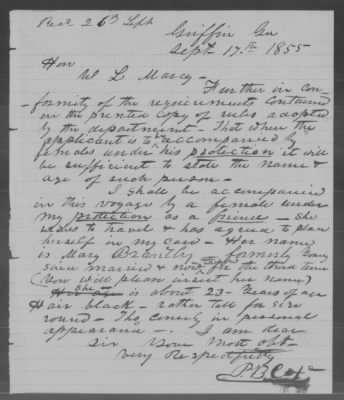 Recd 26th Sept
Griffin Ga
Sept. 17th 1855
Hon
W. L. Marcy -
Further in con-
-formity of the requirements contained
in the printed copy of rules adopted
by the department - That when the
applicant is to be accompanied by
females under his protection it will
be sufficient to state the name &
age of such person -
I shall be accompanied
in this voyage by a female under
my protection as a friend - she
wishes to travel & has agreed to place
herself in my care - Her name
is Mary Brantly - formerly
married & now for the third time
(You will please insert her name)
she is about 23 - Years of age
Hair black - rather tall for
round - in personal
appearance - I am dear
sir Your most obt
very Respectfully
P. B. Cox